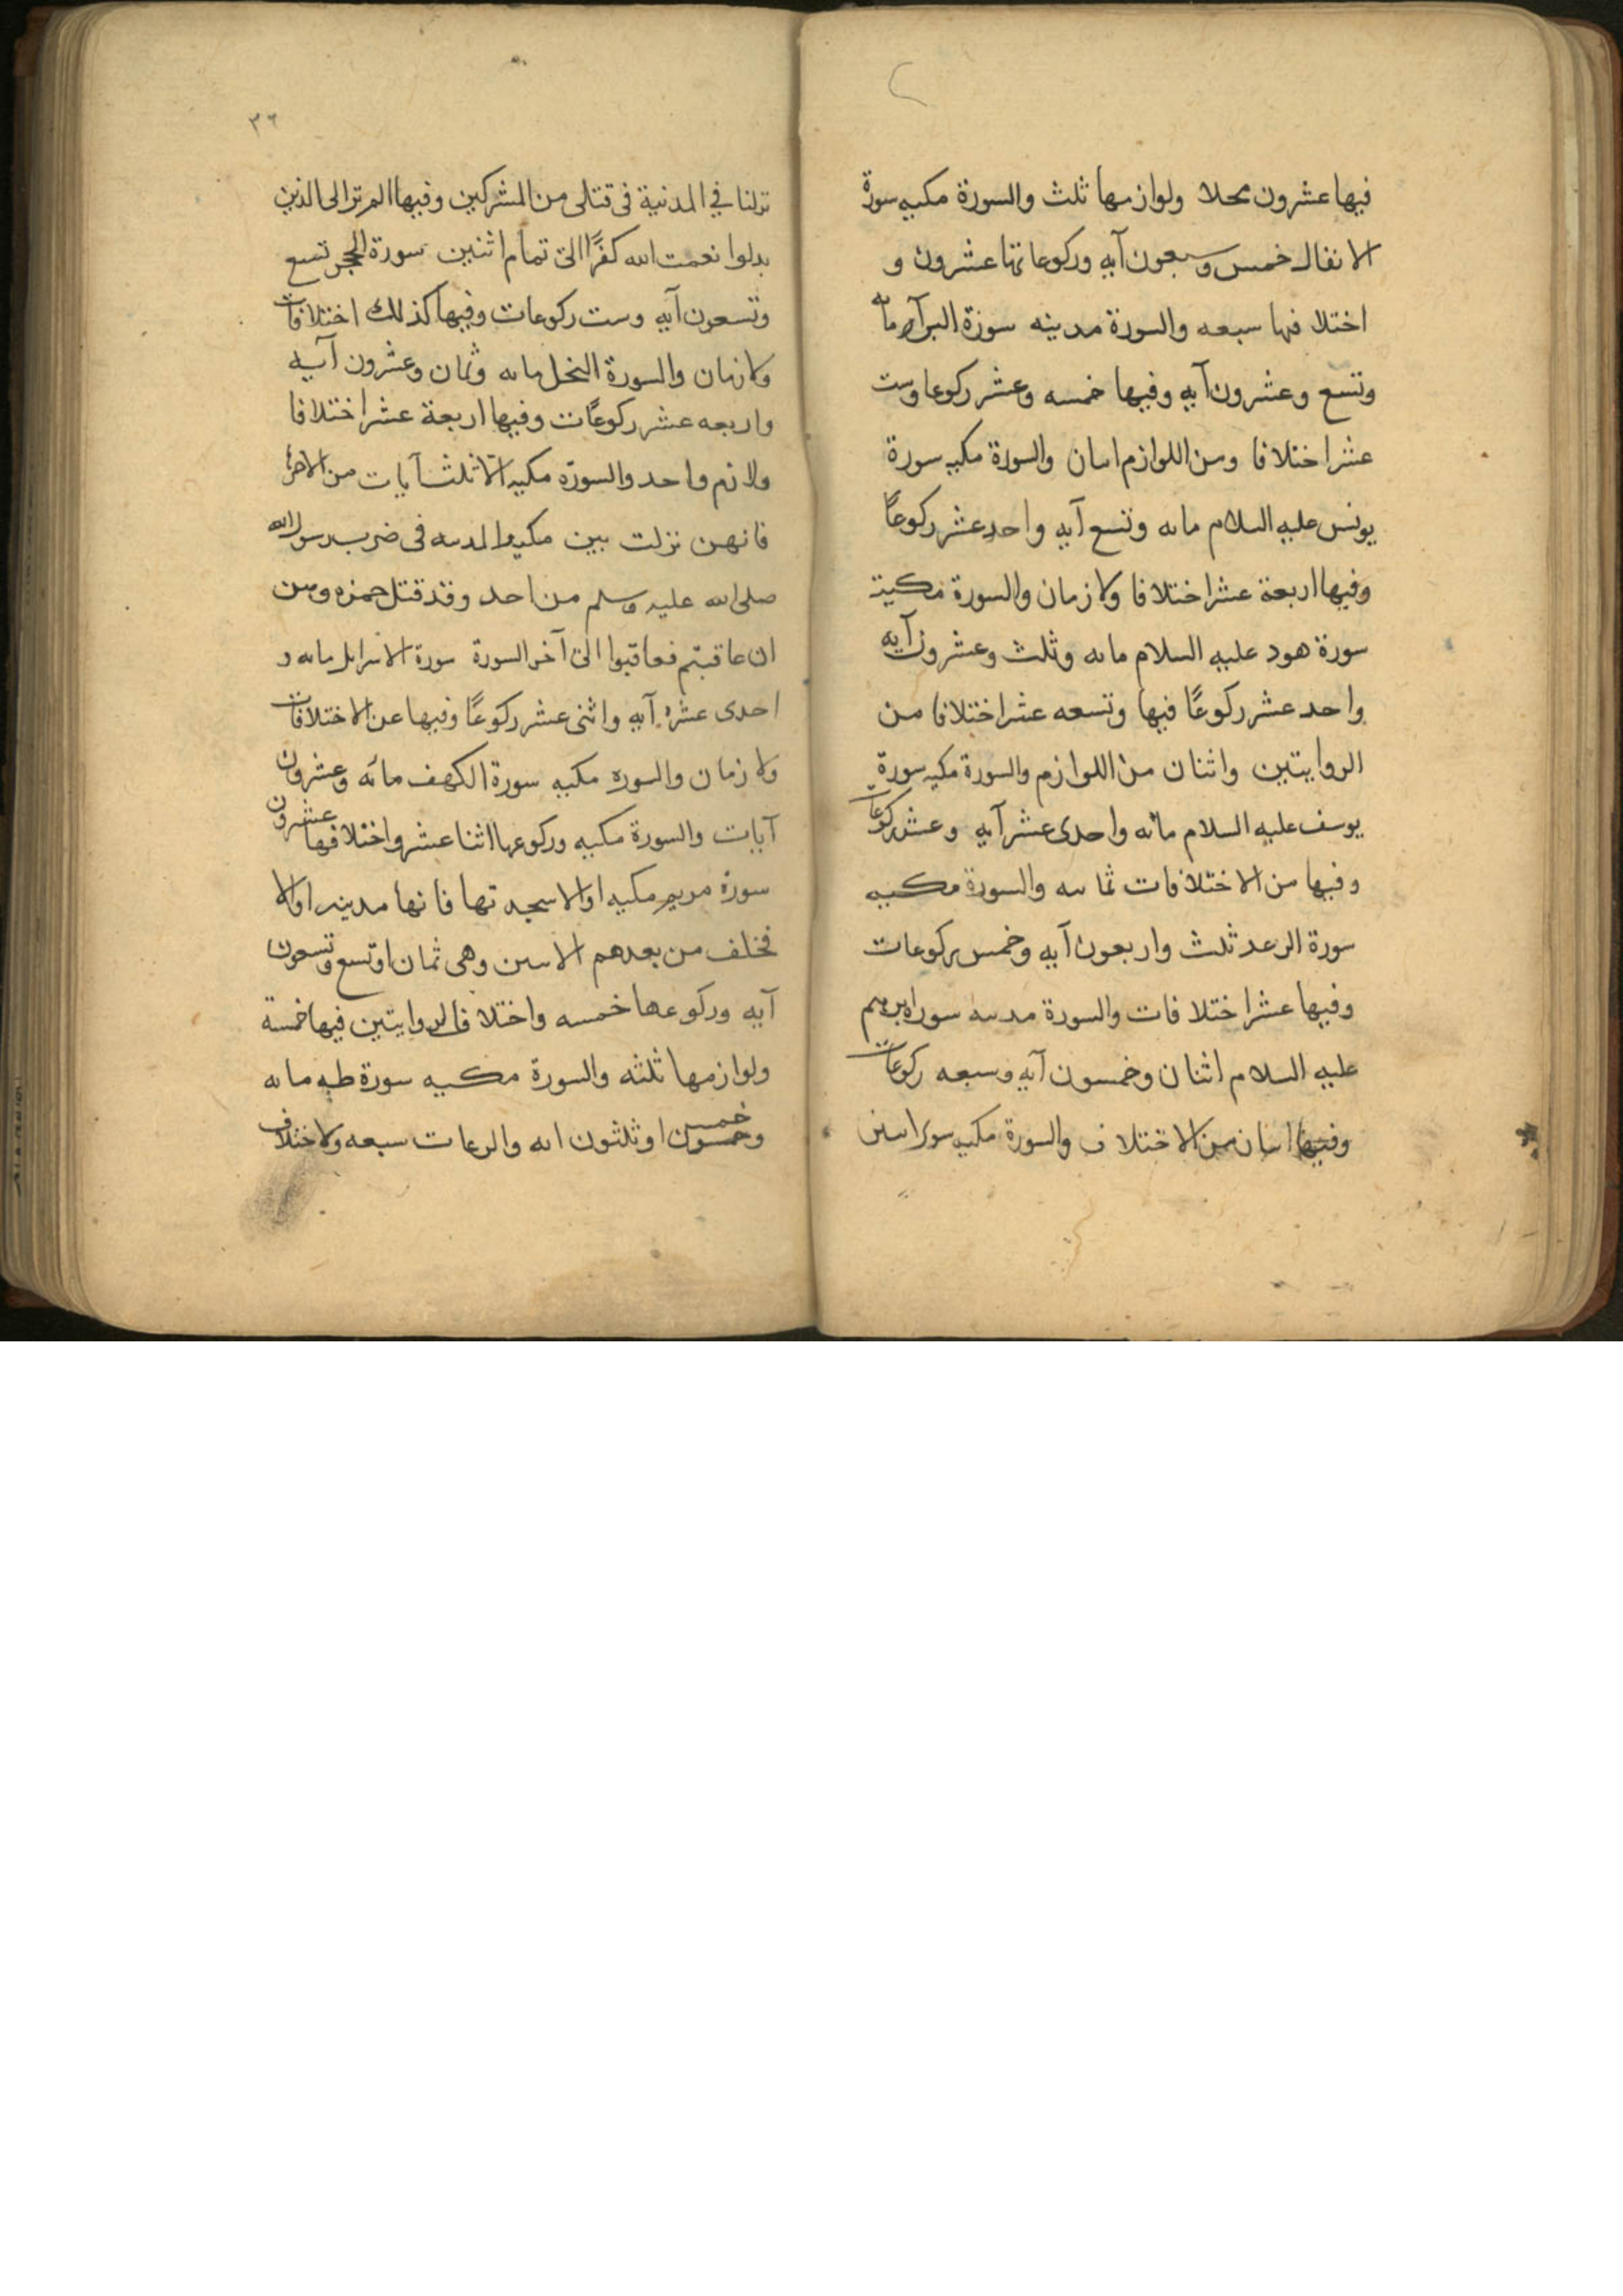 فيها عشرون محلا ولوازمها ثلث والسورة مكيه سورة
الانفال خمس وسبعون آيه وركوعاتها عشرون و
اختلافها سبعه والسورة مدينه سورة البرآه مائه
وتسع وعشرون آيه وفيها خمسه وعشر ركوعا وست
عشر اختلافا ومن اللوازم اسان والسورة مكيه سورة
يونس عليه السلام مائه وتسع آيه واحد عشر ركوعًا
وفيها اربعة عشر اختلافا ولازمان والسورة مكية
سورة هود عليه السلام مائه وثلث وعشرون آيه
واحد عشر ركوعًا فيها وتسعه عشر اختلافا من
الروايتين واثنان من اللوازم والسورة مكيه سورة
يوسف عليه السلام مائه واحدى عشر آيه وعشر ركوعات
وفيها من الاختلافات ثمانيه والسورة مكييه
سورة الرعد ثلث واربعون آيه وخمس ركوعات
وفيها عشر اختلافات والسورة مدنيه سورة ابرهيم
عليه السلام اثنان وخمسون آيه وسبعه ركوعات
وفيها اسان من الاختلاف والسورة مكيه سوى
٣٦
نزلنا في المدنية في قتلى من المشركين وفيها الم تر الى الذين
بدلوا نعمت الله كفرًا الى تمام اثنين سورة الحجر تسع
وتسعون آيه وست ركوعات وفيها كذلك اختلافات
ولازمان والسورة النحل مائه وثمان وعشرون آيه
واربعه عشر ركوعًات وفيها اربعة عشر اختلافا
ولازم واحد والسورة مكيه الا ثلث آيات من
فانهن نزلت بين مكيه والمدينه في ضرب رسول الله
صلى الله عليه وسلم من احد وقد قتل حمزه ومن
ان عاقبتم فعاقبوا الى آخر السورة سورة الاسرايل مائه و
احدى عشر آيه واثنى عشر ركوعًا وفيها عن الاختلافات
ولازمان والسوره مكيه سورة الكهف مائه وعشرون
آيات والسورة مكيه وركوعها اثنا عشر واختلافها عشرون
سورة مريم مكيه او الا سجدتها فانها مدينه او الا
فخلف من بعدهم الاسين وهى ثمان او تسع وتسعون
آيه وركوعها خمسه واختلاف الروايتين فيها خمسة
ولوازمها ثلثه والسورة مكيه سورة طه مائه
وخمس او ثلثون ايه والركعات سبعه ولاختلاف